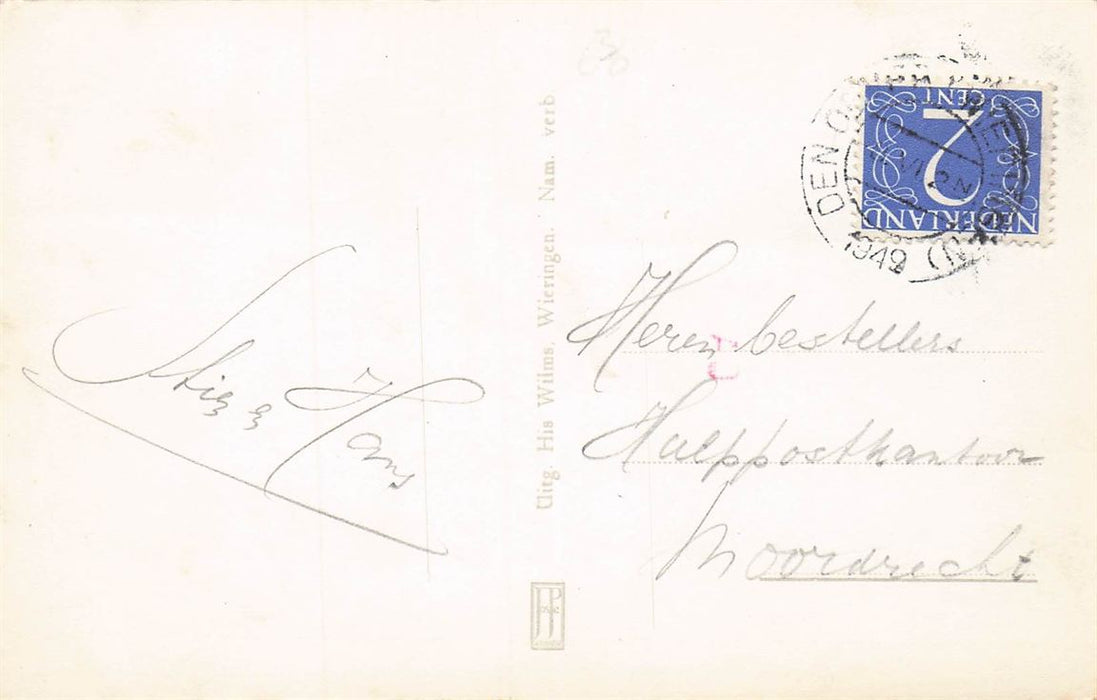 Stien & Hans
Uitg. His Wilms, Wieringen. Nam. verb
NEDERLAND
2
CENT
DEN OEVER
1949
Heren bestellers
Hulppostkantoor
Moordrecht